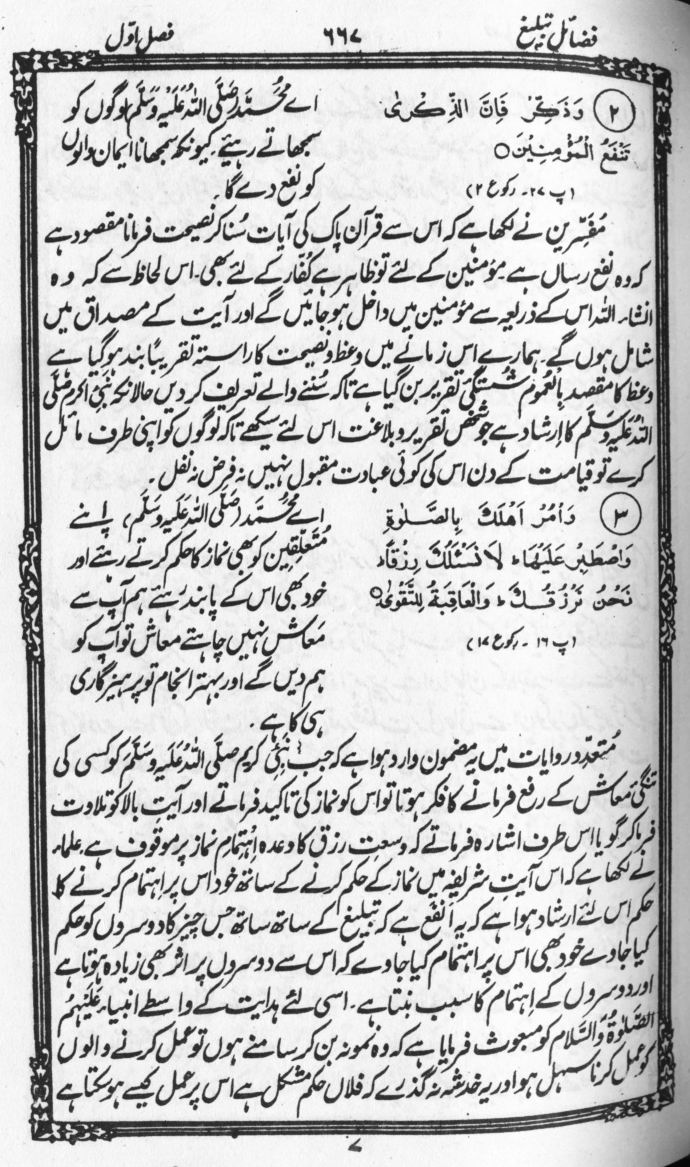 فضائل تبلیغ ۶۶۷ فصل اوّل
(۲) وَذَکِّرْ فَاِنَّ الذِّکْرٰی
تَنْفَعُ الْمُؤْمِنِیْنَ○
(پ ۲۷۔ رکوع ۲)
اے محمّد (صَلَّی اللّٰہُ عَلَیْہِ وَسَلَّم) لوگوں کو
سمجھاتے رہیئے۔ کیونکہ سمجھانا ایمان والوں
کو نفع دے گا۔
مفسّرین نے لکھا ہے کہ اس سے قرآن پاک کی آیات سُنا کر نصیحت فرمانا مقصود ہے
کہ وہ نفع رساں ہے مؤمنین کے لئے تو ظاہر ہے کفّار کے لئے بھی۔ اس لحاظ سے کہ وہ
انشاء اللہ اس کے ذریعہ سے مؤمنین میں داخل ہو جائیں گے اور آیت کے مصداق میں
شامل ہوں گے۔ ہمارے اس زمانے میں وعظ و نصیحت کا راستہ تقریبًا بند ہو گیا ہے
وعظ کا مقصد بالعُموم شُستگیٔ تقریر بن گیا ہے تاکہ سُننے والے تعریف کر دیں حالانکہ نبیٔ اکرم صَلَّی
اللّٰہُ عَلَیْہِ وَسَلَّم کا اِرشاد ہے جو شخص تقریر و بلاغت اس لئے سیکھے تاکہ لوگوں کو اپنی طرف مائل
کرے تو قیامت کے دن اس کی کوئی عبادت مقبول نہیں نہ فرض نہ نفل۔
(۳) وَاْمُرْ اَھْلَکَ بِالصَّلٰوۃِ
وَاصْطَبِرْ عَلَیْھَا ؕ لَا نَسْئَلُکَ رِزْقًا ؕ
نَحْنُ نَرْزُقُکَ ؕ وَالْعَاقِبَۃُ لِلتَّقْوٰی○
(پ ۱۶۔ رکوع ۱۷)
اے محمّد (صَلَّی اللّٰہُ عَلَیْہِ وَسَلَّم) اپنے
مُتعلّقین کو بھی نماز کا حکم کرتے رہئے اور
خود بھی اس کے پابند رہئے ہم آپ سے
مَعاش نہیں چاہتے معاش تو آپ کو
ہم دیں گے اور بہتر انجام تو پرہیزگاری
ہی کا ہے
مُتعدِّد روایات میں یہ مضمون وارد ہوا ہے کہ جب نبیٔ کریم صَلَّی اللّٰہُ عَلَیْہِ وَسَلَّم کو کسی کی
تنگیٔ معاش کے رفع فرمانے کا فکر ہوتا تو اس کو نماز کی تاکید فرماتے اور آیتِ بالا کو تلاوت
فرما کر گویا اس طرف اشارہ فرماتے کہ وسعتِ رزق کا وعدہ اہتمامِ نماز پر موقوف ہے۔ علماء
نے لکھا ہے کہ اس آیتِ شریفہ میں نماز کے حکم کرنے کے ساتھ خود اس پر اِہتمام کرنے کا
حکم اس لئے ارشاد ہوا ہے کہ یہ اَنفع ہے کہ تبلیغ کے ساتھ ساتھ جس چیز کا دوسروں کو حکم
کیا جاوے خود بھی اس پر اہتمام کیا جاوے کہ اس سے دوسروں پر اثر بھی زیادہ ہوتا ہے
اور دوسروں کے اہتمام کا سبب بنتا ہے۔ اسی لئے ہدایت کے واسطے انبیاء عَلَیْہِمُ
الصَّلٰوۃُ وَالسَّلَام کو مبعوث فرمایا ہے کہ وہ نمونہ بن کر سامنے ہوں تو عمل کرنے والوں
کو عمل کرنا سہل ہو اور یہ خدشہ نہ گذرے کہ فلاں حکم مشکل ہے اس پر عمل کیسے ہو سکتا ہے
۷